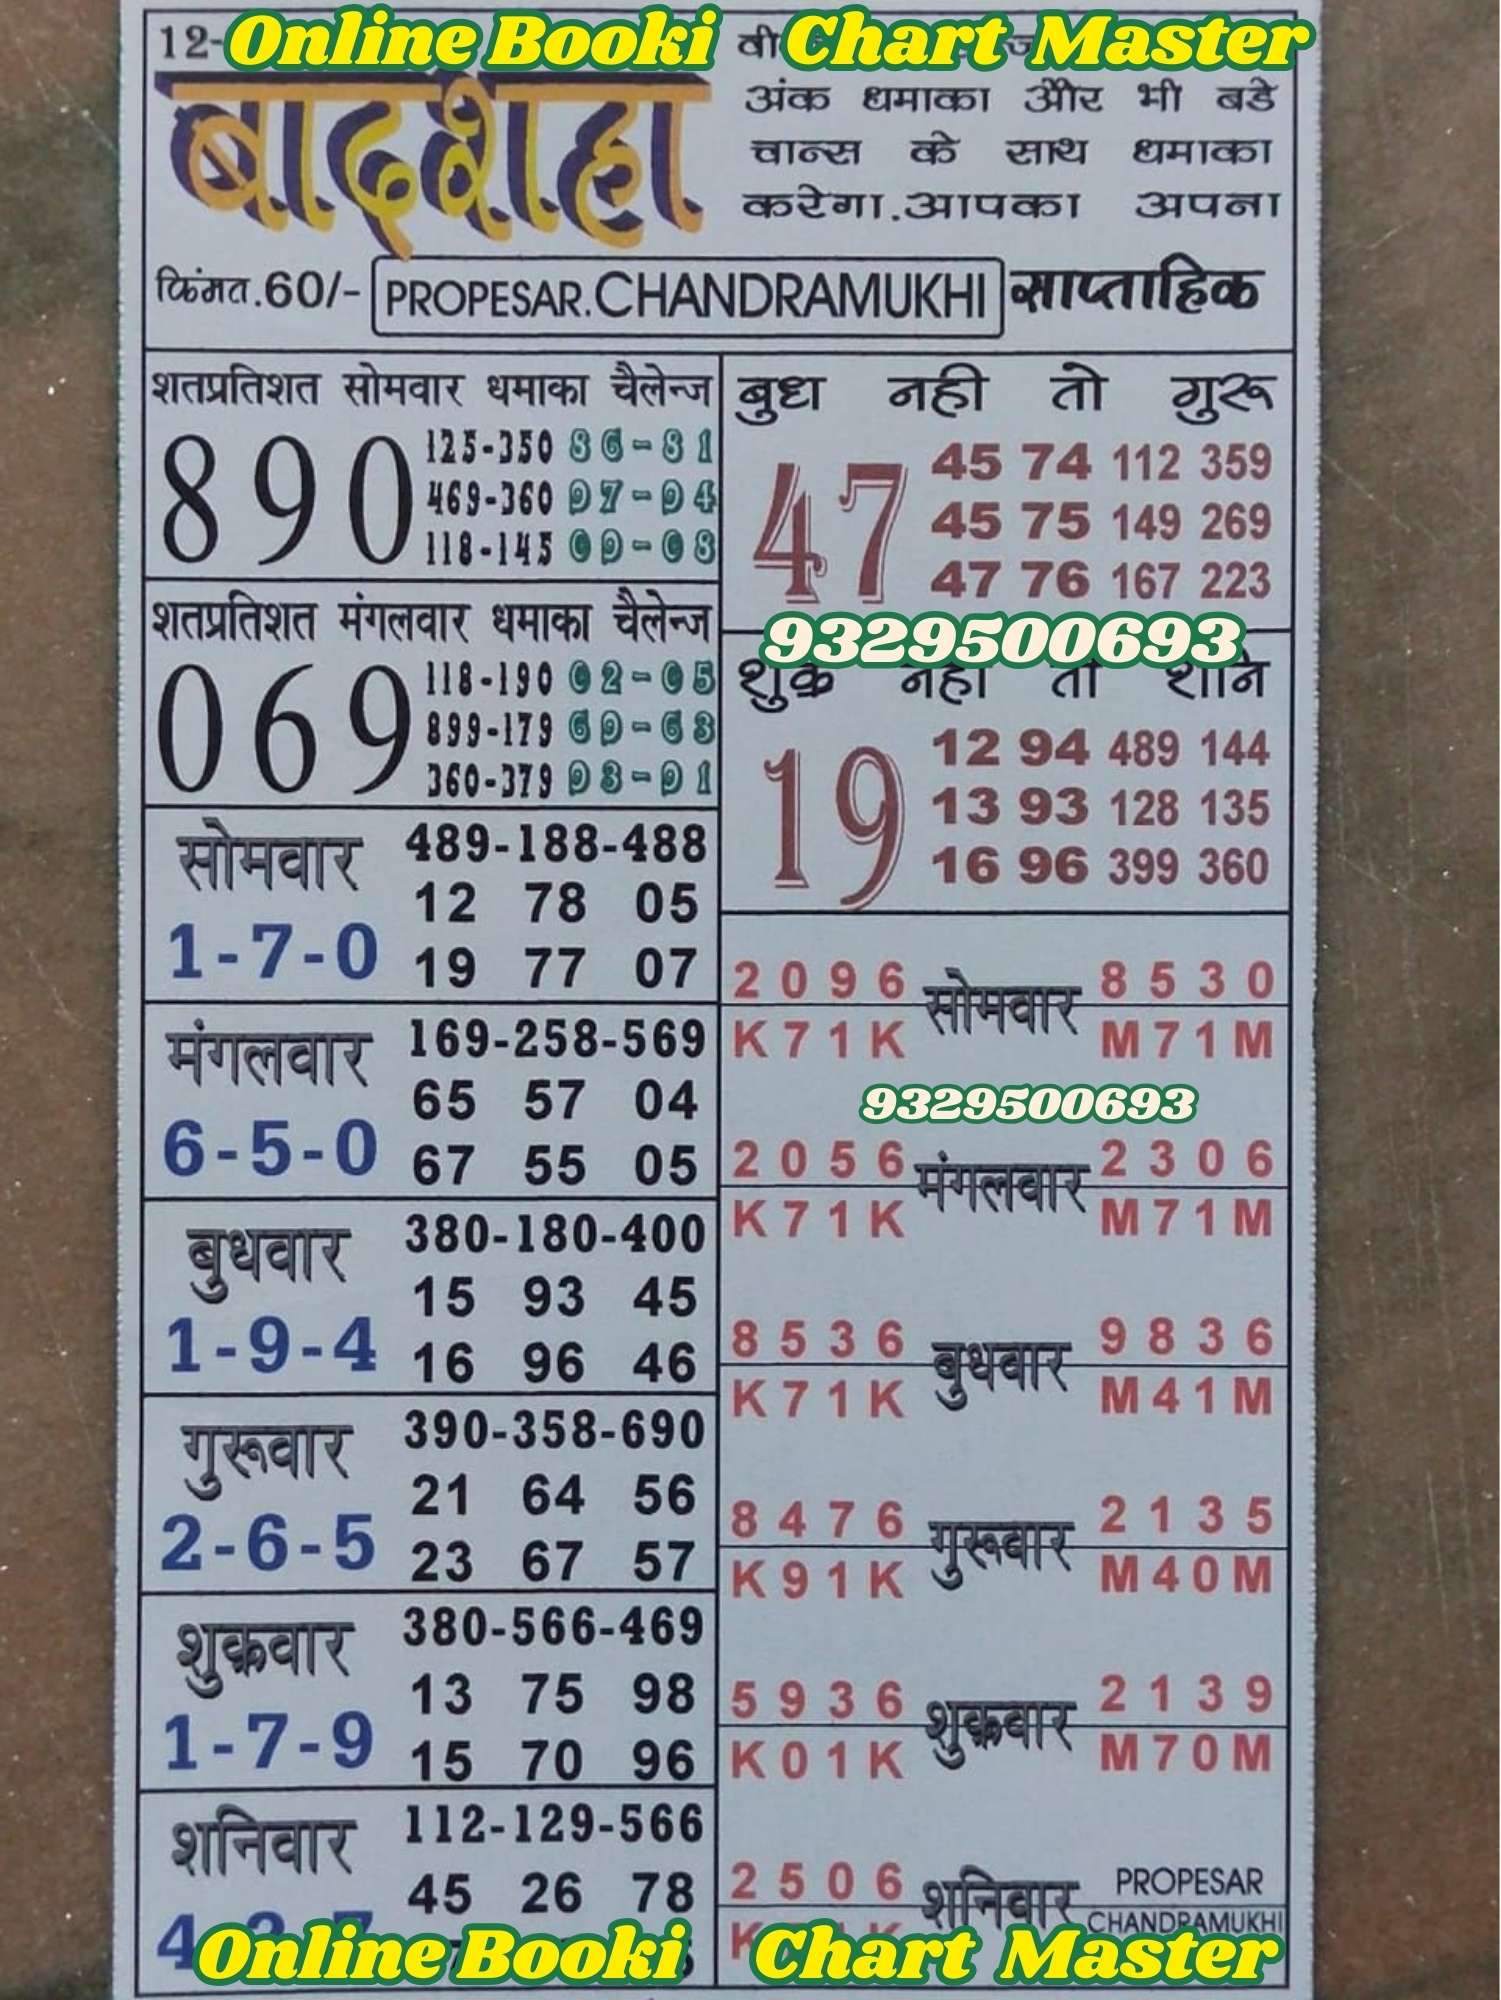 Online Booki Chart Master
12-
बादशहा
अंक धमाका और भी बडे
चान्स के साथ धमाका
करेगा.आपका अपना
किंमत.60/- PROPESAR.CHANDRAMUKHI साप्ताहिक
शतप्रतिशत सोमवार धमाका चैलेन्ज
890
125-350 86-81
469-360 97-94
118-145 09-08
शतप्रतिशत मंगलवार धमाका चैलेन्ज
069
118-190 02-05
899-179 69-63
360-379 93-91
सोमवार 489-188-488
12 78 05
1-7-0 19 77 07
मंगलवार 169-258-569
65 57 04
6-5-0 67 55 05
बुधवार 380-180-400
15 93 45
1-9-4 16 96 46
गुरूवार 390-358-690
21 64 56
2-6-5 23 67 57
शुक्रवार 380-566-469
13 75 98
1-7-9 15 70 96
शनिवार 112-129-566
45 26 78
बुध नही तो गुरू
47
45 74 112 359
45 75 149 269
47 76 167 223
9329500693
शुक्र नही तो शनि
19
12 94 489 144
13 93 128 135
16 96 399 360
2096 सोमवार 8530
K71K M71M
9329500693
2056 मंगलवार 2306
K71K M71M
8536 बुधवार 9836
K71K M41M
8476 गुरूवार 2135
K91K M40M
5936 शुक्रवार 2139
K01K M70M
2506 शनिवार PROPESAR
CHANDRAMUKHI
Online Booki Chart Master